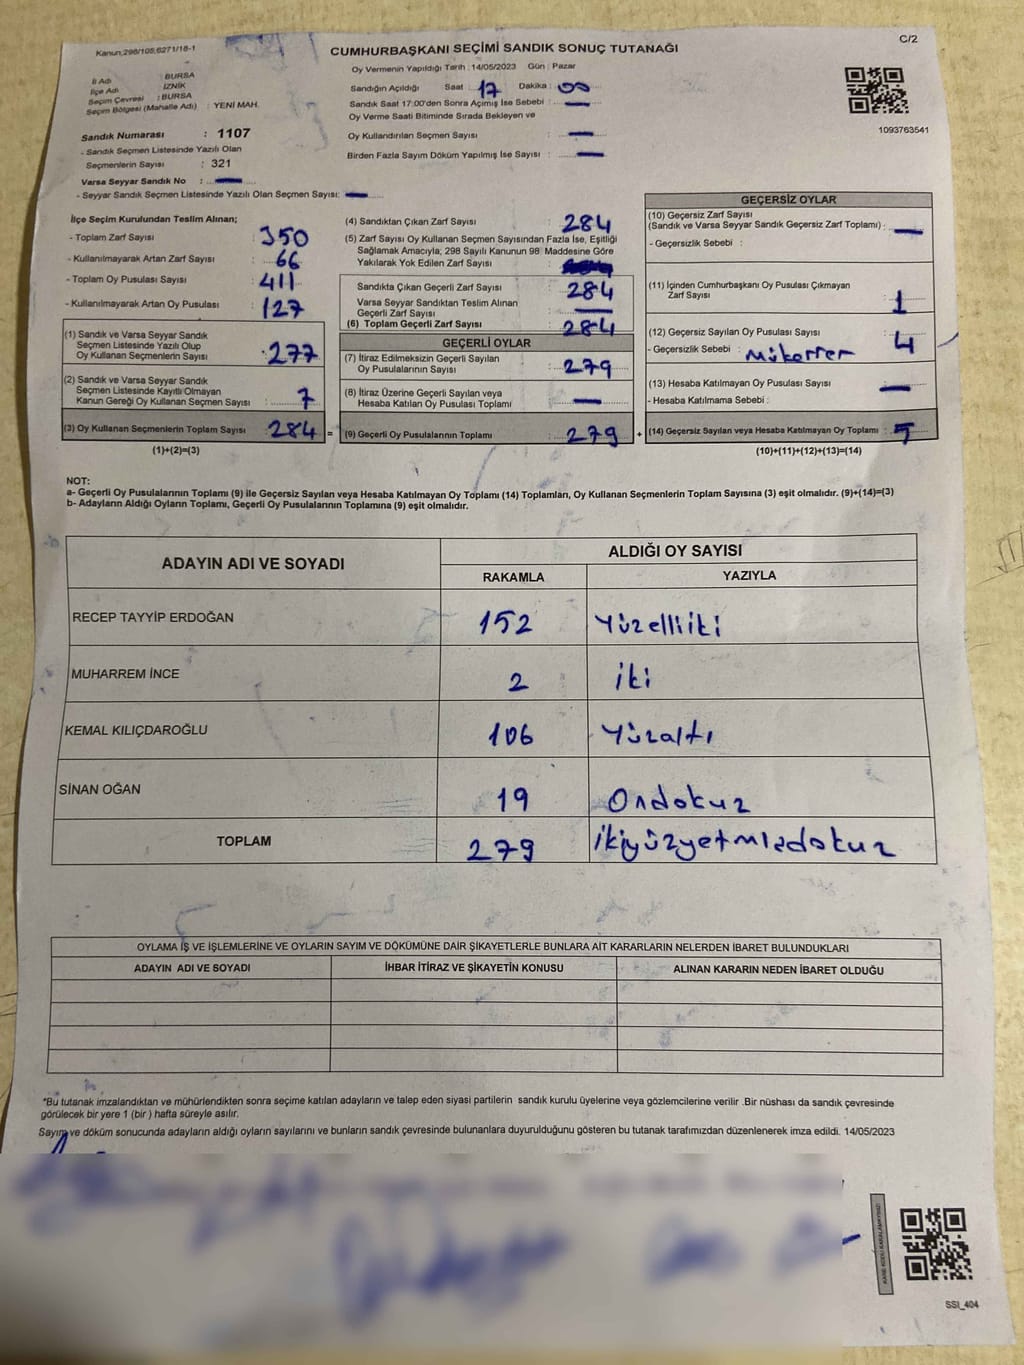 Kanun,298/105,6271/18-1
CUMHURBAŞKANI SEÇİMİ SANDIK SONUÇ TUTANAĞI
C/2
Oy Vermenin Yapıldığı Tarih : 14/05/2023 Gün : Pazar
İl Adı : BURSA
İlçe Adı : İZNİK
Seçim Çevresi : BURSA
Seçim Bölgesi (Mahalle Adı) : YENİ MAH.
Sandığın Açıldığı Saat : 17 Dakika : 00
Sandık Saat 17:00'den Sonra Açılmış İse Sebebi : —
Oy Verme Saati Bitiminde Sırada Bekleyen ve
Oy Kullandırılan Seçmen Sayısı : —
Birden Fazla Sayım Döküm Yapılmış İse Sayısı : —
1093763541
Sandık Numarası : 1107
- Sandık Seçmen Listesinde Yazılı Olan
Seçmenlerin Sayısı : 321
Varsa Seyyar Sandık No : —
- Seyyar Sandık Seçmen Listesinde Yazılı Olan Seçmen Sayısı: —
İlçe Seçim Kurulundan Teslim Alınan;
- Toplam Zarf Sayısı : 350
- Kullanılmayarak Artan Zarf Sayısı : 66
- Toplam Oy Pusulası Sayısı : 411
- Kullanılmayarak Artan Oy Pusulası : 127
(1) Sandık ve Varsa Seyyar Sandık
Seçmen Listesinde Yazılı Olup
Oy Kullanan Seçmenlerin Sayısı : 277
(2) Sandık ve Varsa Seyyar Sandık
Seçmen Listesinde Kayıtlı Olmayan
Kanun Gereği Oy Kullanan Seçmen Sayısı : 7
(3) Oy Kullanan Seçmenlerin Toplam Sayısı : 284 =
(1)+(2)=(3)
(4) Sandıktan Çıkan Zarf Sayısı : 284
(5) Zarf Sayısı Oy Kullanan Seçmen Sayısından Fazla İse, Eşitliği
Sağlamak Amacıyla, 298 Sayılı Kanunun 98. Maddesine Göre
Yakılarak Yok Edilen Zarf Sayısı :
Sandıkta Çıkan Geçerli Zarf Sayısı : 284
Varsa Seyyar Sandıktan Teslim Alınan
Geçerli Zarf Sayısı : —
(6) Toplam Geçerli Zarf Sayısı : 284
GEÇERLİ OYLAR
(7) İtiraz Edilmeksizin Geçerli Sayılan
Oy Pusulalarının Sayısı : 279
(8) İtiraz Üzerine Geçerli Sayılan veya
Hesaba Katılan Oy Pusulası Toplamı : —
(9) Geçerli Oy Pusulalarının Toplamı : 279 +
GEÇERSİZ OYLAR
(10) Geçersiz Zarf Sayısı
(Sandık ve Varsa Seyyar Sandık Geçersiz Zarf Toplamı) : —
- Geçersizlik Sebebi :
(11) İçinden Cumhurbaşkanı Oy Pusulası Çıkmayan
Zarf Sayısı : 1
(12) Geçersiz Sayılan Oy Pusulası Sayısı : 4
- Geçersizlik Sebebi : Mükerrer
(13) Hesaba Katılmayan Oy Pusulası Sayısı : —
- Hesaba Katılmama Sebebi :
(14) Geçersiz Sayılan veya Hesaba Katılmayan Oy Toplamı : 5
(10)+(11)+(12)+(13)=(14)
NOT:
a- Geçerli Oy Pusulalarının Toplamı (9) ile Geçersiz Sayılan veya Hesaba Katılmayan Oy Toplamı (14) Toplamları, Oy Kullanan Seçmenlerin Toplam Sayısına (3) eşit olmalıdır. (9)+(14)=(3)
b- Adayların Aldığı Oyların Toplamı, Geçerli Oy Pusulalarının Toplamına (9) eşit olmalıdır.
ADAYIN ADI VE SOYADI
ALDIĞI OY SAYISI
RAKAMLA YAZIYLA
RECEP TAYYİP ERDOĞAN 152 Yüzelliiki
MUHARREM İNCE 2 iki
KEMAL KILIÇDAROĞLU 106 Yüzaltı
SİNAN OĞAN 19 Ondokuz
TOPLAM 279 ikiyüzyetmişdokuz
OYLAMA İŞ VE İŞLEMLERİNE VE OYLARIN SAYIM VE DÖKÜMÜNE DAİR ŞİKAYETLERLE BUNLARA AİT KARARLARIN NELERDEN İBARET BULUNDUKLARI
ADAYIN ADI VE SOYADI İHBAR İTİRAZ VE ŞİKAYETİN KONUSU ALINAN KARARIN NEDEN İBARET OLDUĞU
*Bu tutanak imzalandıktan ve mühürlendikten sonra seçime katılan adayların ve talep eden siyasi partilerin sandık kurulu üyelerine veya gözlemcilerine verilir .Bir nüshası da sandık çevresinde
görülecek bir yere 1 (bir ) hafta süreyle asılır.
Sayım ve döküm sonucunda adayların aldığı oyların sayılarını ve bunların sandık çevresinde bulunanlara duyurulduğunu gösteren bu tutanak tarafımızdan düzenlenerek imza edildi. 14/05/2023
SSI_404